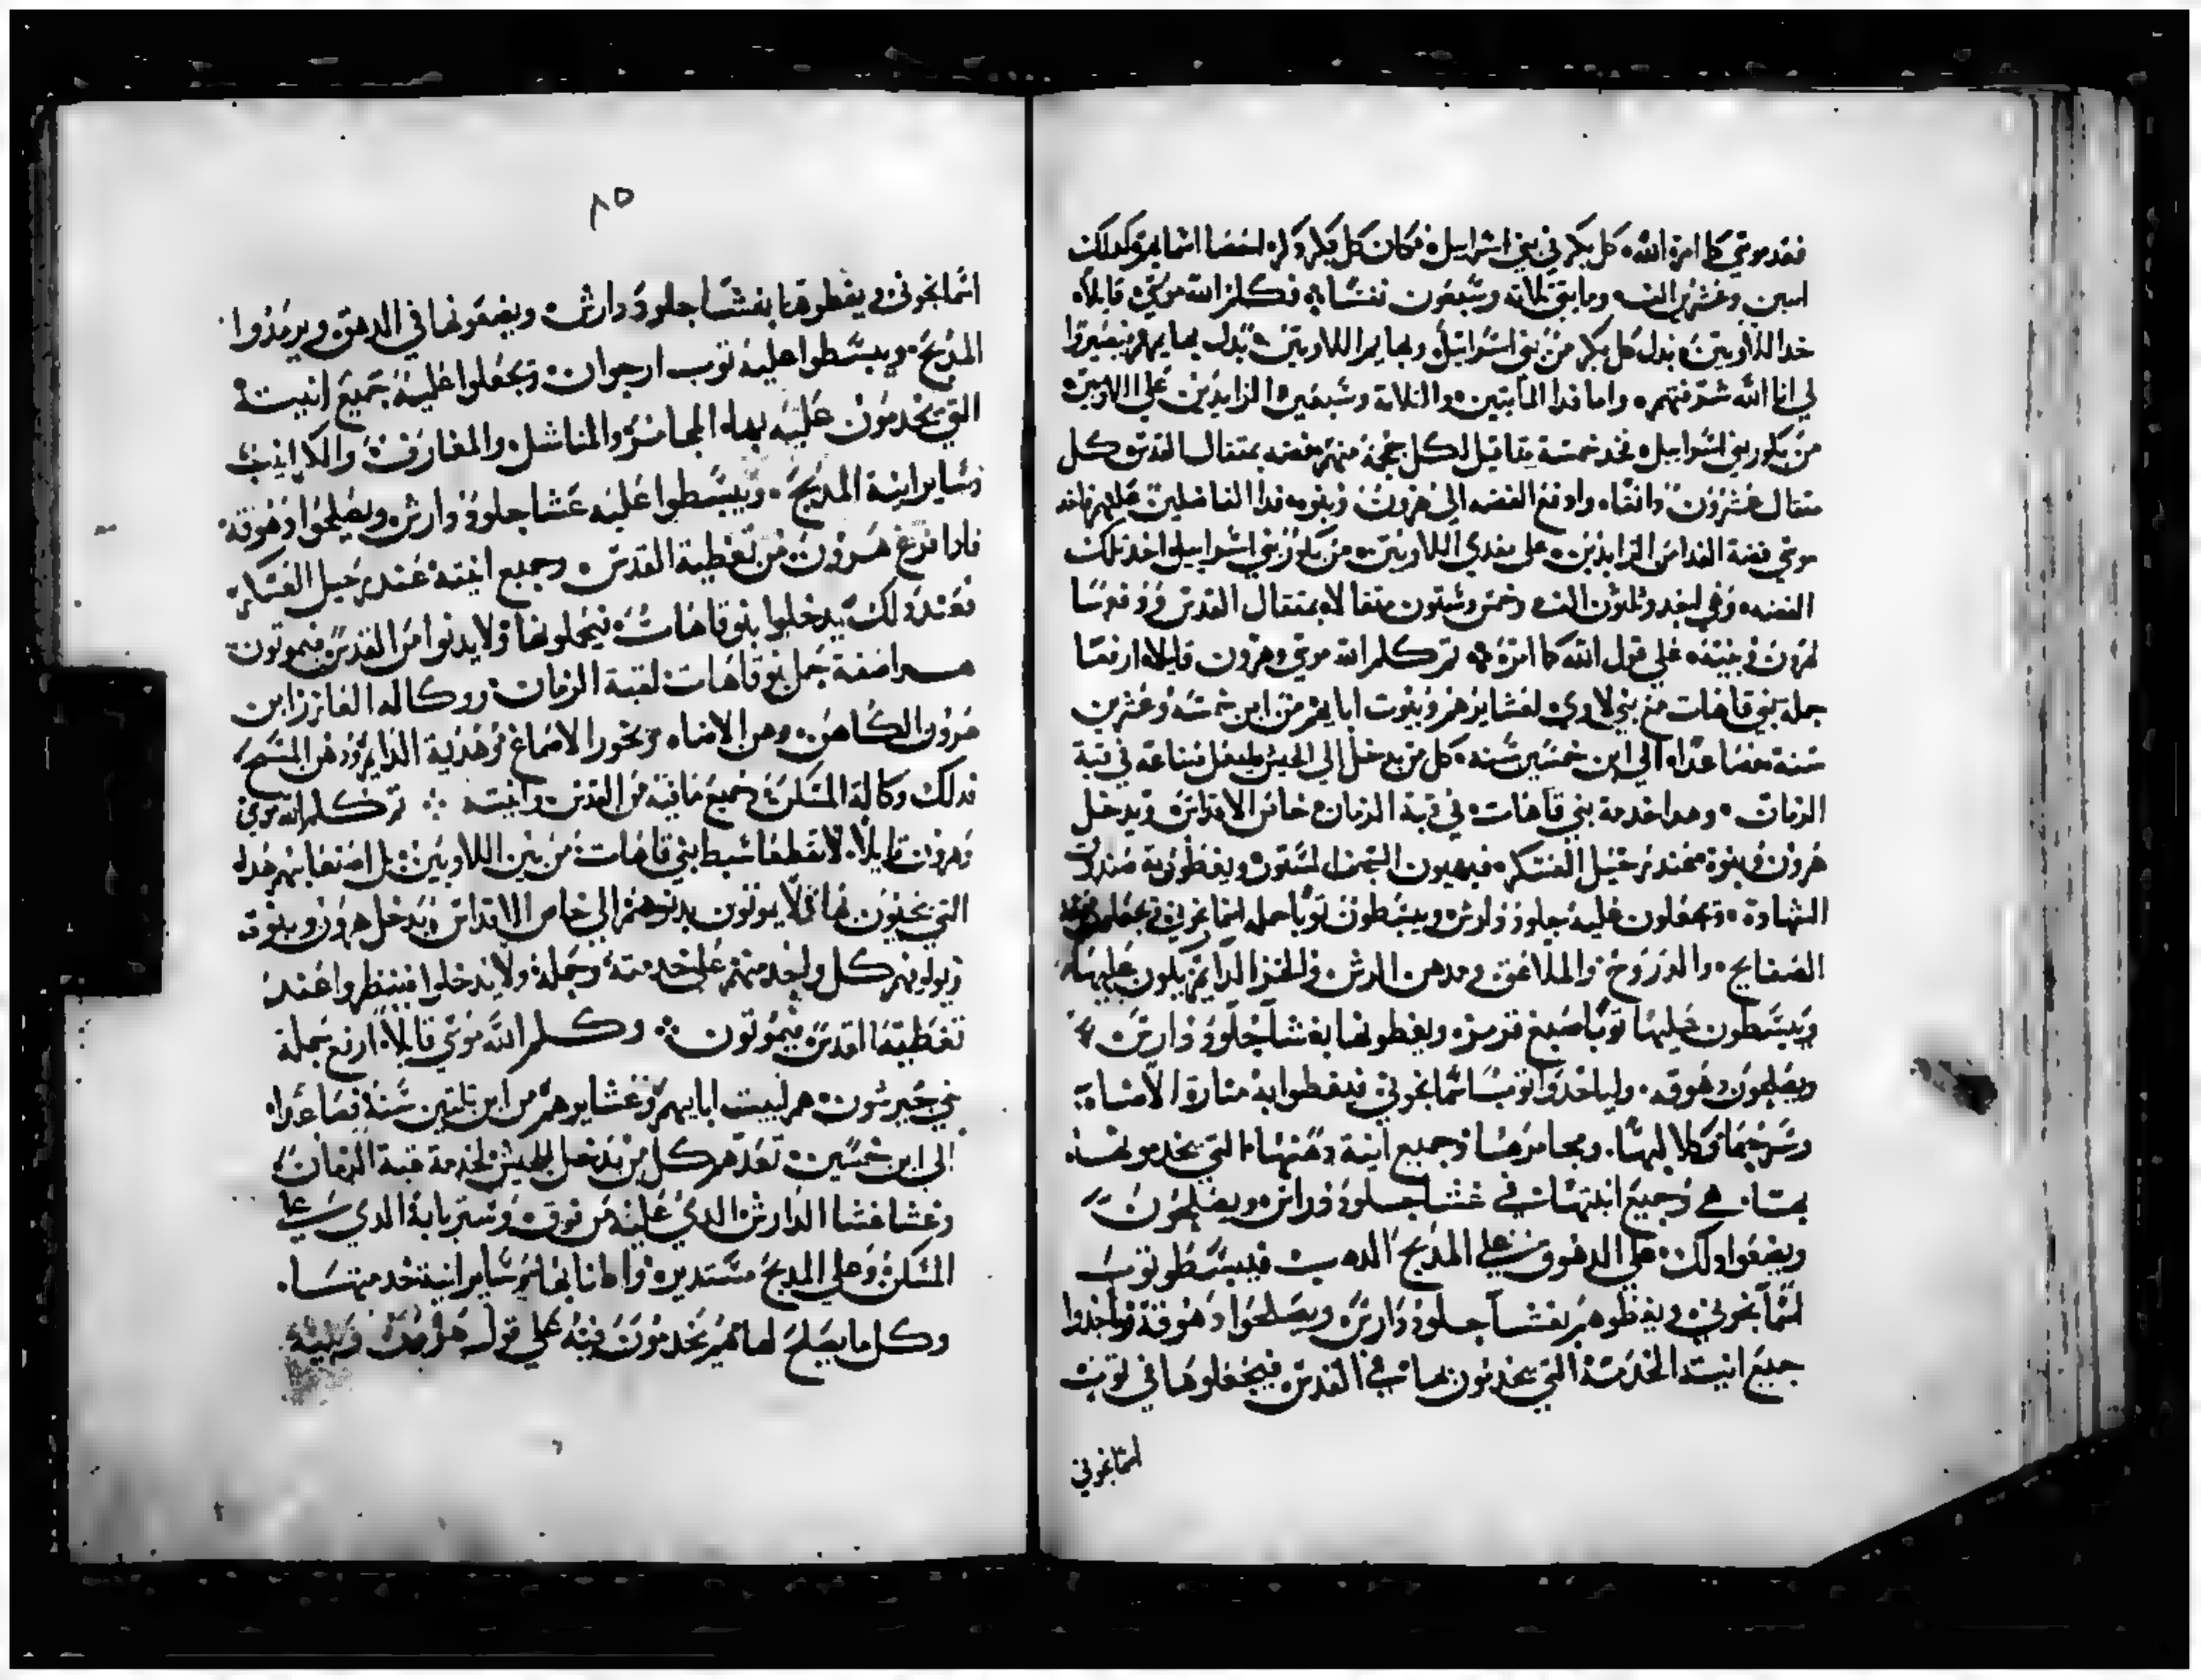 فعد موسي كما امره الله كل بكر في بني اسرايل فكان كل بكر دكر احصا اسمايهم وكدلك
اسين وعشرين الف وما يتي تلاته وسبعون نفسا فكلم الله موسي قايلا
خد اللاويين بدل كل بكر من بني اسرائيل وبهايم اللاويين بدل بهايمهم فيصيروا
لي انا الله شرفتهم واما فدا المايتين والتلاتة وسبعين الزايدين علي اللاويين
من بكور بني اسرايل فخد خمسة متاقيل لكل جمجمة منهم فضه بمتقال القدس كل
متقال عشرون دانقا وادفع الفضه الي هرون وبنوه فدا الفاضلين عليهم فاخد
موسي فضة الفدا من الزايدين علي مفدي اللاويين من بكور بني اسرايل اخد تلك
الفضه وهي الف وتلتون الف وخمس وستون متقالا بمتقال القدس ودفعها
لهرون وبنيه علي قول الله كما امره تم كلم الله موسي وهرون قايلا ارفعا
جملة بني قاهات من بني لاوي لعشايرهم وبيوت ابايهم من ابن خمسه وعشرين
سنة فصاعدا الي ابن خمسين سنه كل من يدخل الي الجيش ليعمل صناعه في قبة
الزمان وهدا خدمة بني قاهات في قبة الزمان خاص الاقداس ويدخل
هرون وبنوه عند رحيل العسكر فيهيون السجف المستور ويغطون به صندوق
الشهادة ويجعلون عليه جلود دارش ويبسطون توبا جمله اسمانجوني ويجعلون
الصفايح والدروخ والملاعق ومدهن الرش والخبز الدايم يكون عليها
ويبسطون عليها توبا صبغ قرمز ويغطونها بغشا جلود دارش
ويصلحون دهوقه ولياخدوا توبا اسمانجوني فيغطوا به منارة الاضاه
وسرجها وكلاليبها ومجامرها وجميع انية دهنها التي يخدمونها
بها في وجميع انيتها في غشا جلود دراش ويصلحون
ويضعوا دلك علي الدهوق علي المدبح الدهب فيبسطو توب
اسمانجوني ويغطوهم بغشا جلود دارش ويصلحوا دهوقة وياخدوا
جميع انيت الخدمة التي يخدمون بها في القدس فيجعلوها في توب
اسمانجوني
٨٥
اسمانجوني ويغطوها بغشا جلود دارش ويضعونها في الدهق ويرمدوا
المدبح ويبسطوا عليه توب ارجوان ويجعلوا عليه جميع انيته
التي يخدمون عليه بها المجامر والمناشل والمغارف والكلاليب
وساير انية المدبح ويبسطوا عليه غشا جلود دارش ويصلحوا دهوقه
فادا فرغ هرون من تغطية القدس وجميع انيته عند رحيل العسكر
فعند دلك يدخلوا بنو قاهات فيحملونها ولا يدنوا من القدس فيموتون
هدا صفة حمل بنو قاهات لقبة الزمان ووكاله العازر ابن
هرون الكاهن دهن الاضاه وبخور الاصماغ وهدية الدايم ودهن المسح
فدلك وكالة المسكن وجميع مافيه من القدس وانيته تم كلم الله موسي
وهرون قايلا لا تقطعا سبط بني قاهات من بين اللاويين بل اصنعا بهم هدا
التي يحيون بها ولا يموتون بدنوهم الي خاص الاقداس ويدخل هرون وبنوه
ويولونهم كل واحد منهم علي خدمته وحمله ولا يدخلوا فينظروا عند
تغطية القدس فيموتون وكلم الله موسي قايلا ارفع جملة
بني جيرشون هم لبيت ابايهم وعشايرهم من ابن تلتين سنة فصاعدا
الي ابن خمسين تعدهم كل من يدخل للجيش لخدمة قبة الزمان
وغشا غشا الدارش الدي عليه من فوق وستر بابه الدي علي
المسكن وعلي المدبح مستديره واطنابها وساير انية خدمتها
وكل ما يصلح لها هم يخدمون فيه علي قول هرون وبنيه